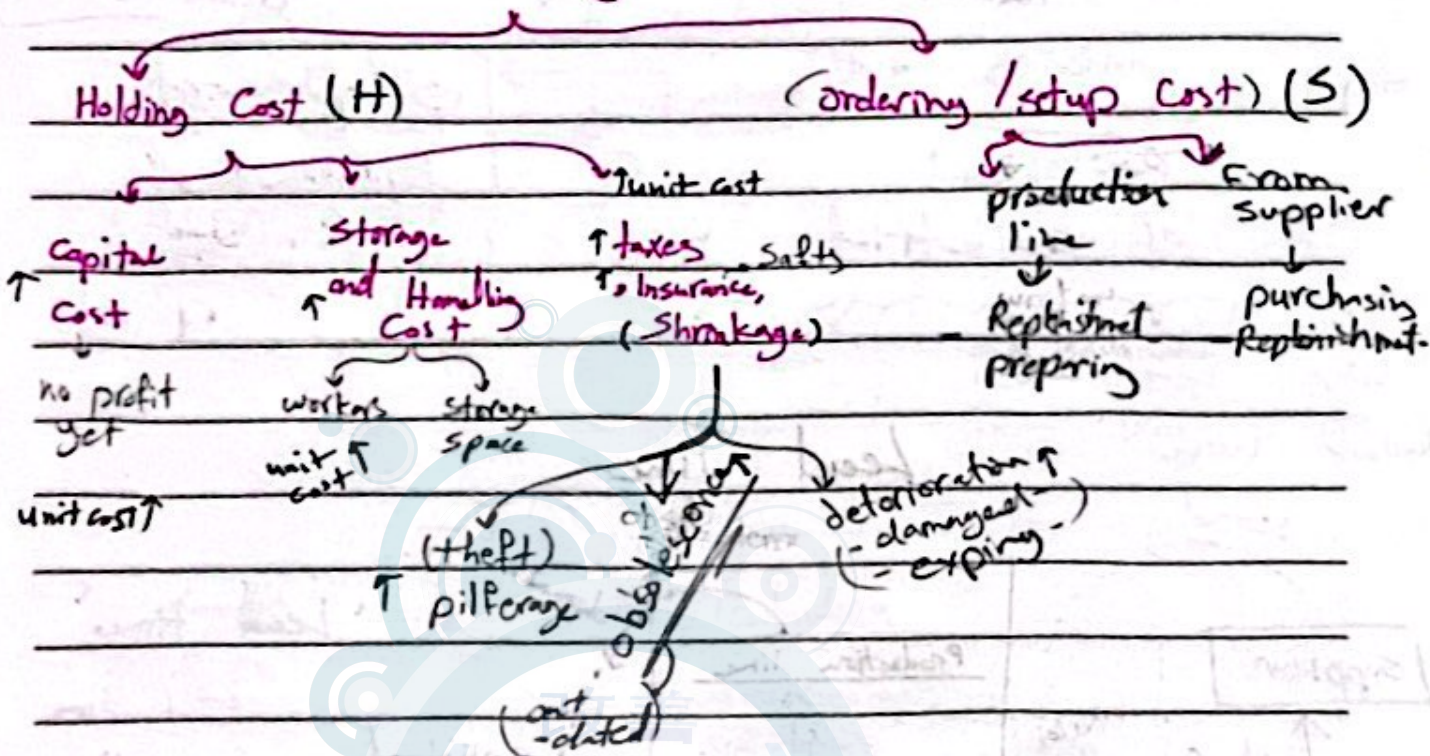 Holding Cost (H)
(ordering / setup Cost) (S)
Capital
↑ Cost
no profit
yet
unit cost↑
Storage
↑ and Handling
Cost
workers
unit ↑
cost
storage
space
↑unit cost
↑ taxes
↑, Insurance, Safty
(Shrinkage)
(theft)
↑ pilferage
obsolescence ↑
(out
-dated)
deterioration ↑
(- damaged -)
- expiring -
production
line
preparing
From
Supplier
purchasing